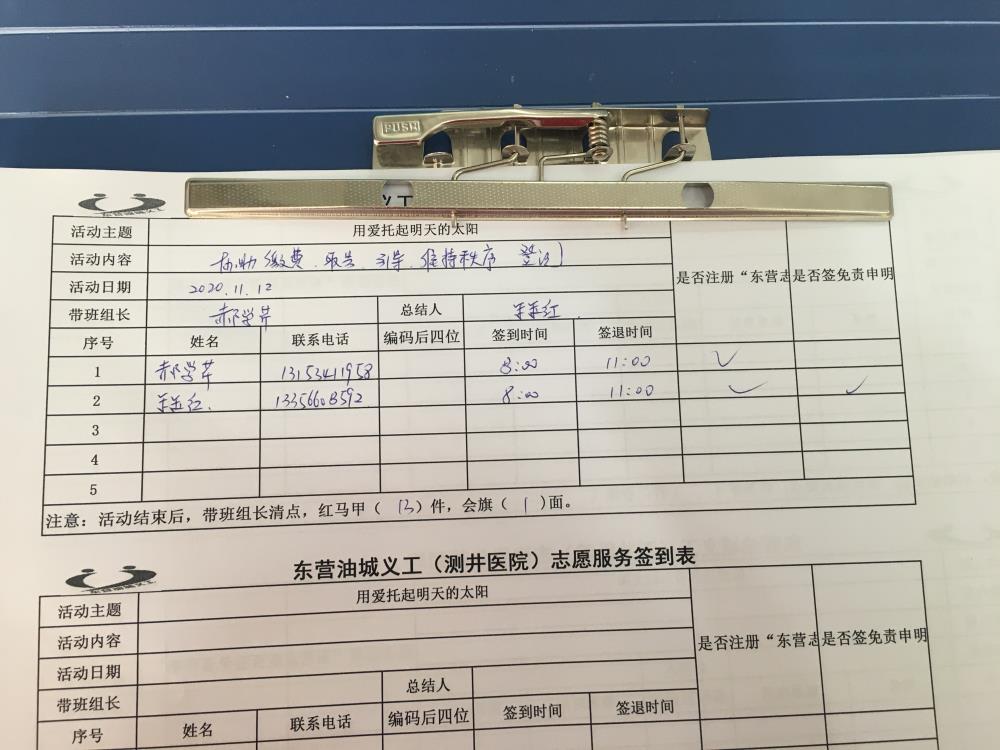 PUSH
东营油城义工
活动主题 用爱托起明天的太阳
活动内容 协助缴费、取告、引导、维持秩序 登记
是否注册“东营志 是否签免责申明
活动日期 2020.11.12
带班组长 郝学芹 总结人
序号 姓名 联系电话 编码后四位 签到时间 签退时间
1 郝学芹 13153411958 8:00 11:00 ✓
2 13356608592 8:00 11:00 ✓ ✓
3
4
5
注意：活动结束后，带班组长清点，红马甲（ 13 ）件，会旗（ 1 ）面。
东营油城义工
东营油城义工（测井医院）志愿服务签到表
活动主题 用爱托起明天的太阳
活动内容
是否注册“东营志 是否签免责申明
活动日期
带班组长 总结人
序号 姓名 联系电话 编码后四位 签到时间 签退时间